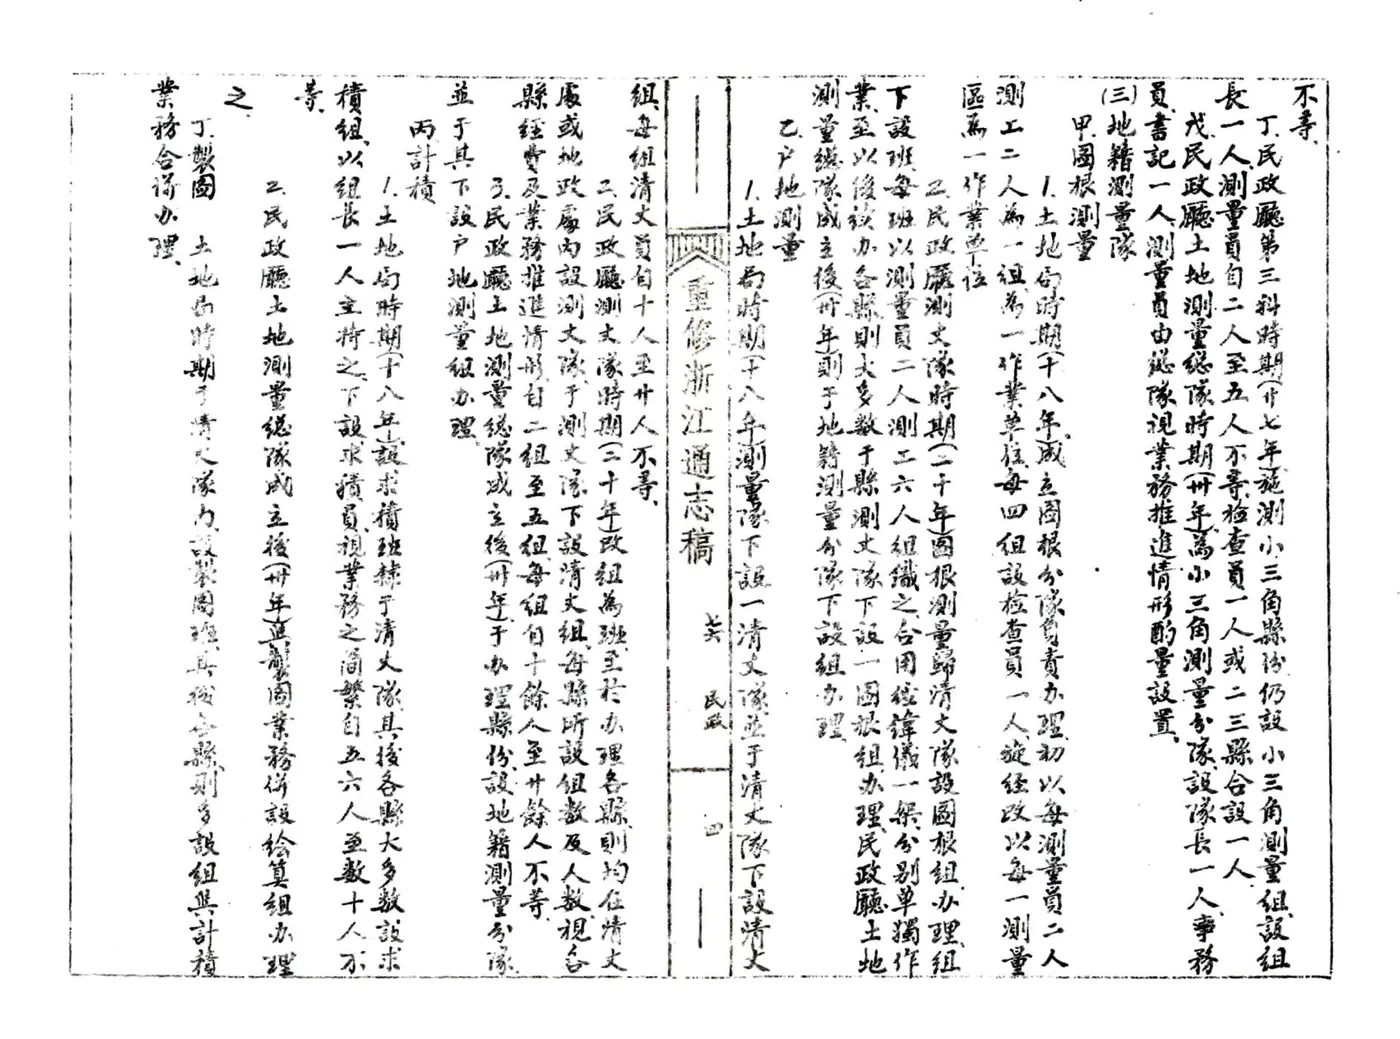 不等、
丁、民政廳第三科時期(廿七年)施測小三角縣份仍設小三角測量組、設組
長一人、測量員自二人至五人不等、檢查員一人或二三縣合設一人、
戊、民政廳土地測量總隊時期(卅年)為小三角測量分隊、設隊長一人、事務
員、書記一人、測量員由總隊視業務推進情形酌量設置、
(三)地籍測量隊
甲、圖根測量
1.土地局時期(十八年)成立圖根分隊負責办理、初以每測量員二人
測工二人為一組、為一作業單位、每四組設檢查員一人、旋經改以每一測量
區為一作業單位
2.民政廳測丈隊時期(二十年)圖根測量歸清丈隊設圖根組办理、組
下設班、每班以測量員二人測工六人組織之、合用經緯儀一架、分別單獨作
業、至以後續办各縣則大多數于縣測丈隊下設一圖根組办理、民政廳土地
測量總隊成立後(卅年)則于地籍測量分隊下設組办理、
乙、戶地測量
1.土地局時期(十八年)測量隊下設一清丈隊並于清丈隊下設清丈
重修浙江通志稿
七六
民政
四
組、每組清丈員自十人至廿人不等、
二、民政廳測丈隊時期(二十年)改組為班、至於办理各縣、則均在清丈
處或地政處內設測丈隊、于測丈隊下設清丈組、每縣所設組數及人數視各
縣經費及業務推進情形自二組至五組、每組自十餘人至廿餘人不等、
3.民政廳土地測量總隊成立後(卅年)于办理縣份設地籍測量分隊
並于其下設戶地測量組办理、
丙、計積
1.土地局時期(十八年)設求積班隸于清丈隊、其後各縣大多數設求
積組、以組長一人主持之、下設求積員、視業務之簡繁自五六人至數十人不
等、
2.民政廳土地測量總隊成立後(卅年)與製圖業務併設繪算組办理
之
丁、製圖 土地局時期于清丈隊內設製圖班、其後各縣則多設組與計積
業務合併办理、